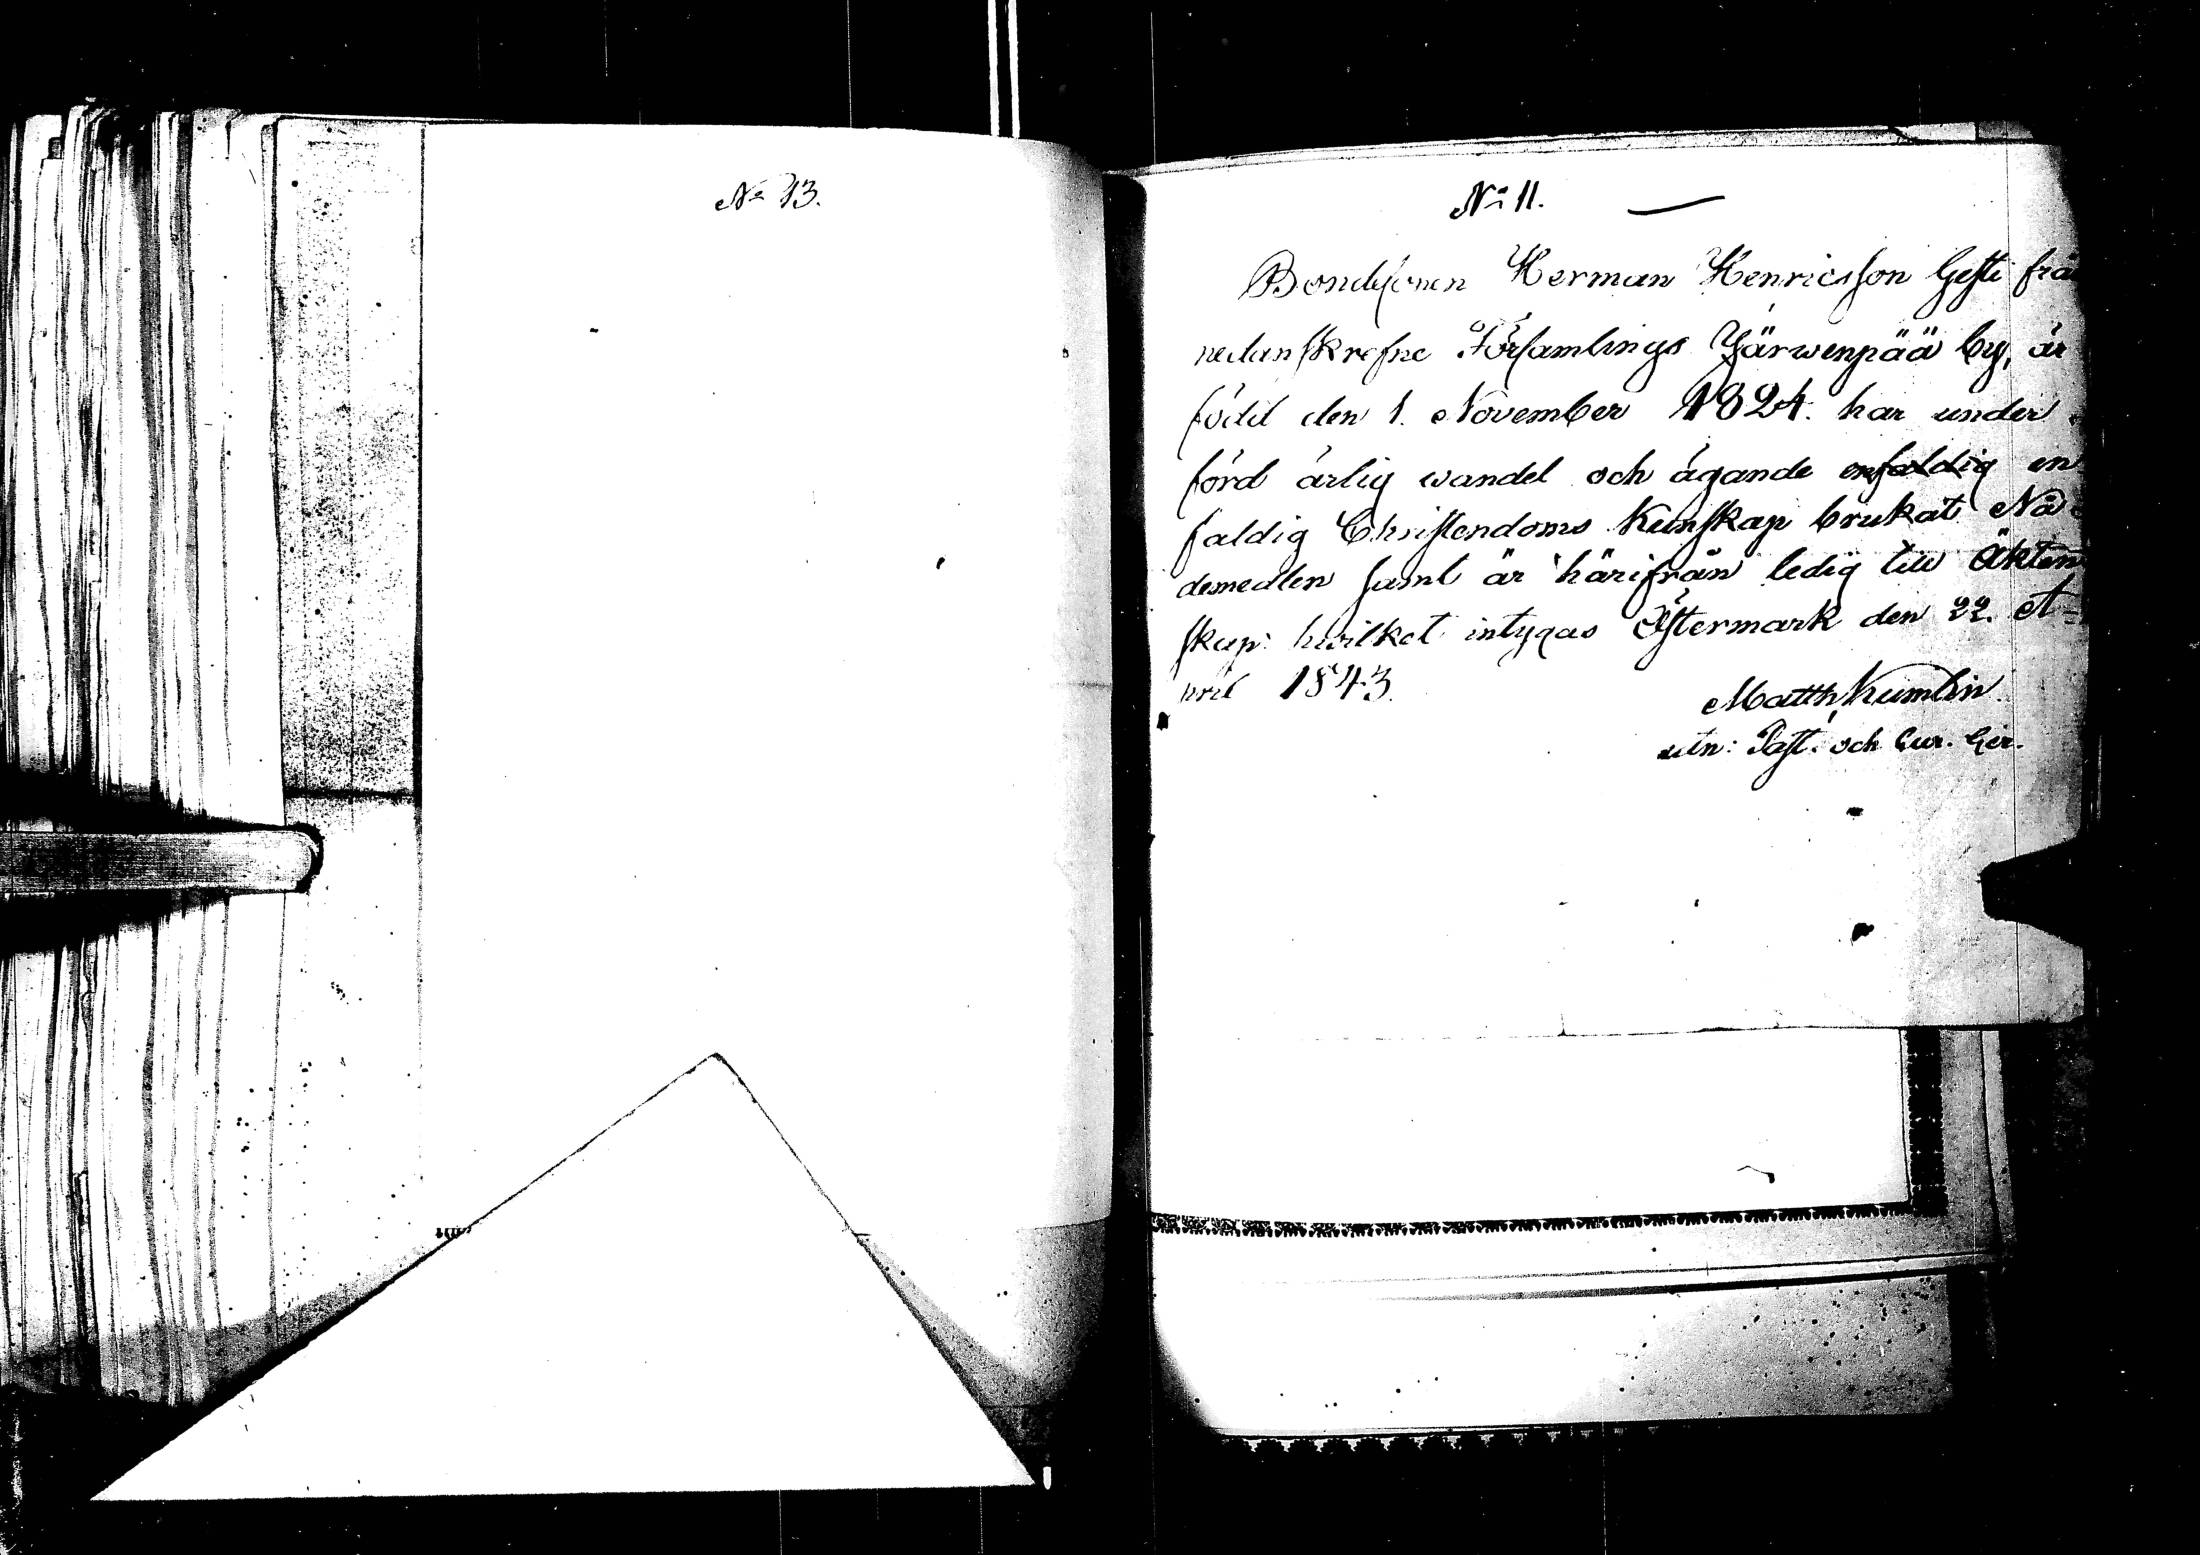 No 13.
No 11.
Bondesonen Herman Henricsson från
nedanskrefne Församlings Järwenpää by, är
född den 1. November 1824. har under
förd ärlig wandel och ägande enfaldig en
faldig Christendoms Kunskap brukat Nå-
demedlen samt är härifrån ledig till Äkten
skap: hwilket intygas Östermark den 22. A=
pril 1843.
Matth Kumlin
utn: Past. och